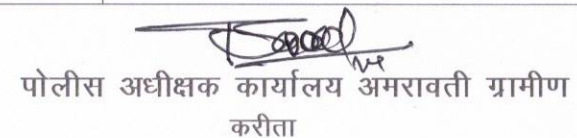 पोलीस अधीक्षक कार्यालय अमरावती ग्रामीण
करीता